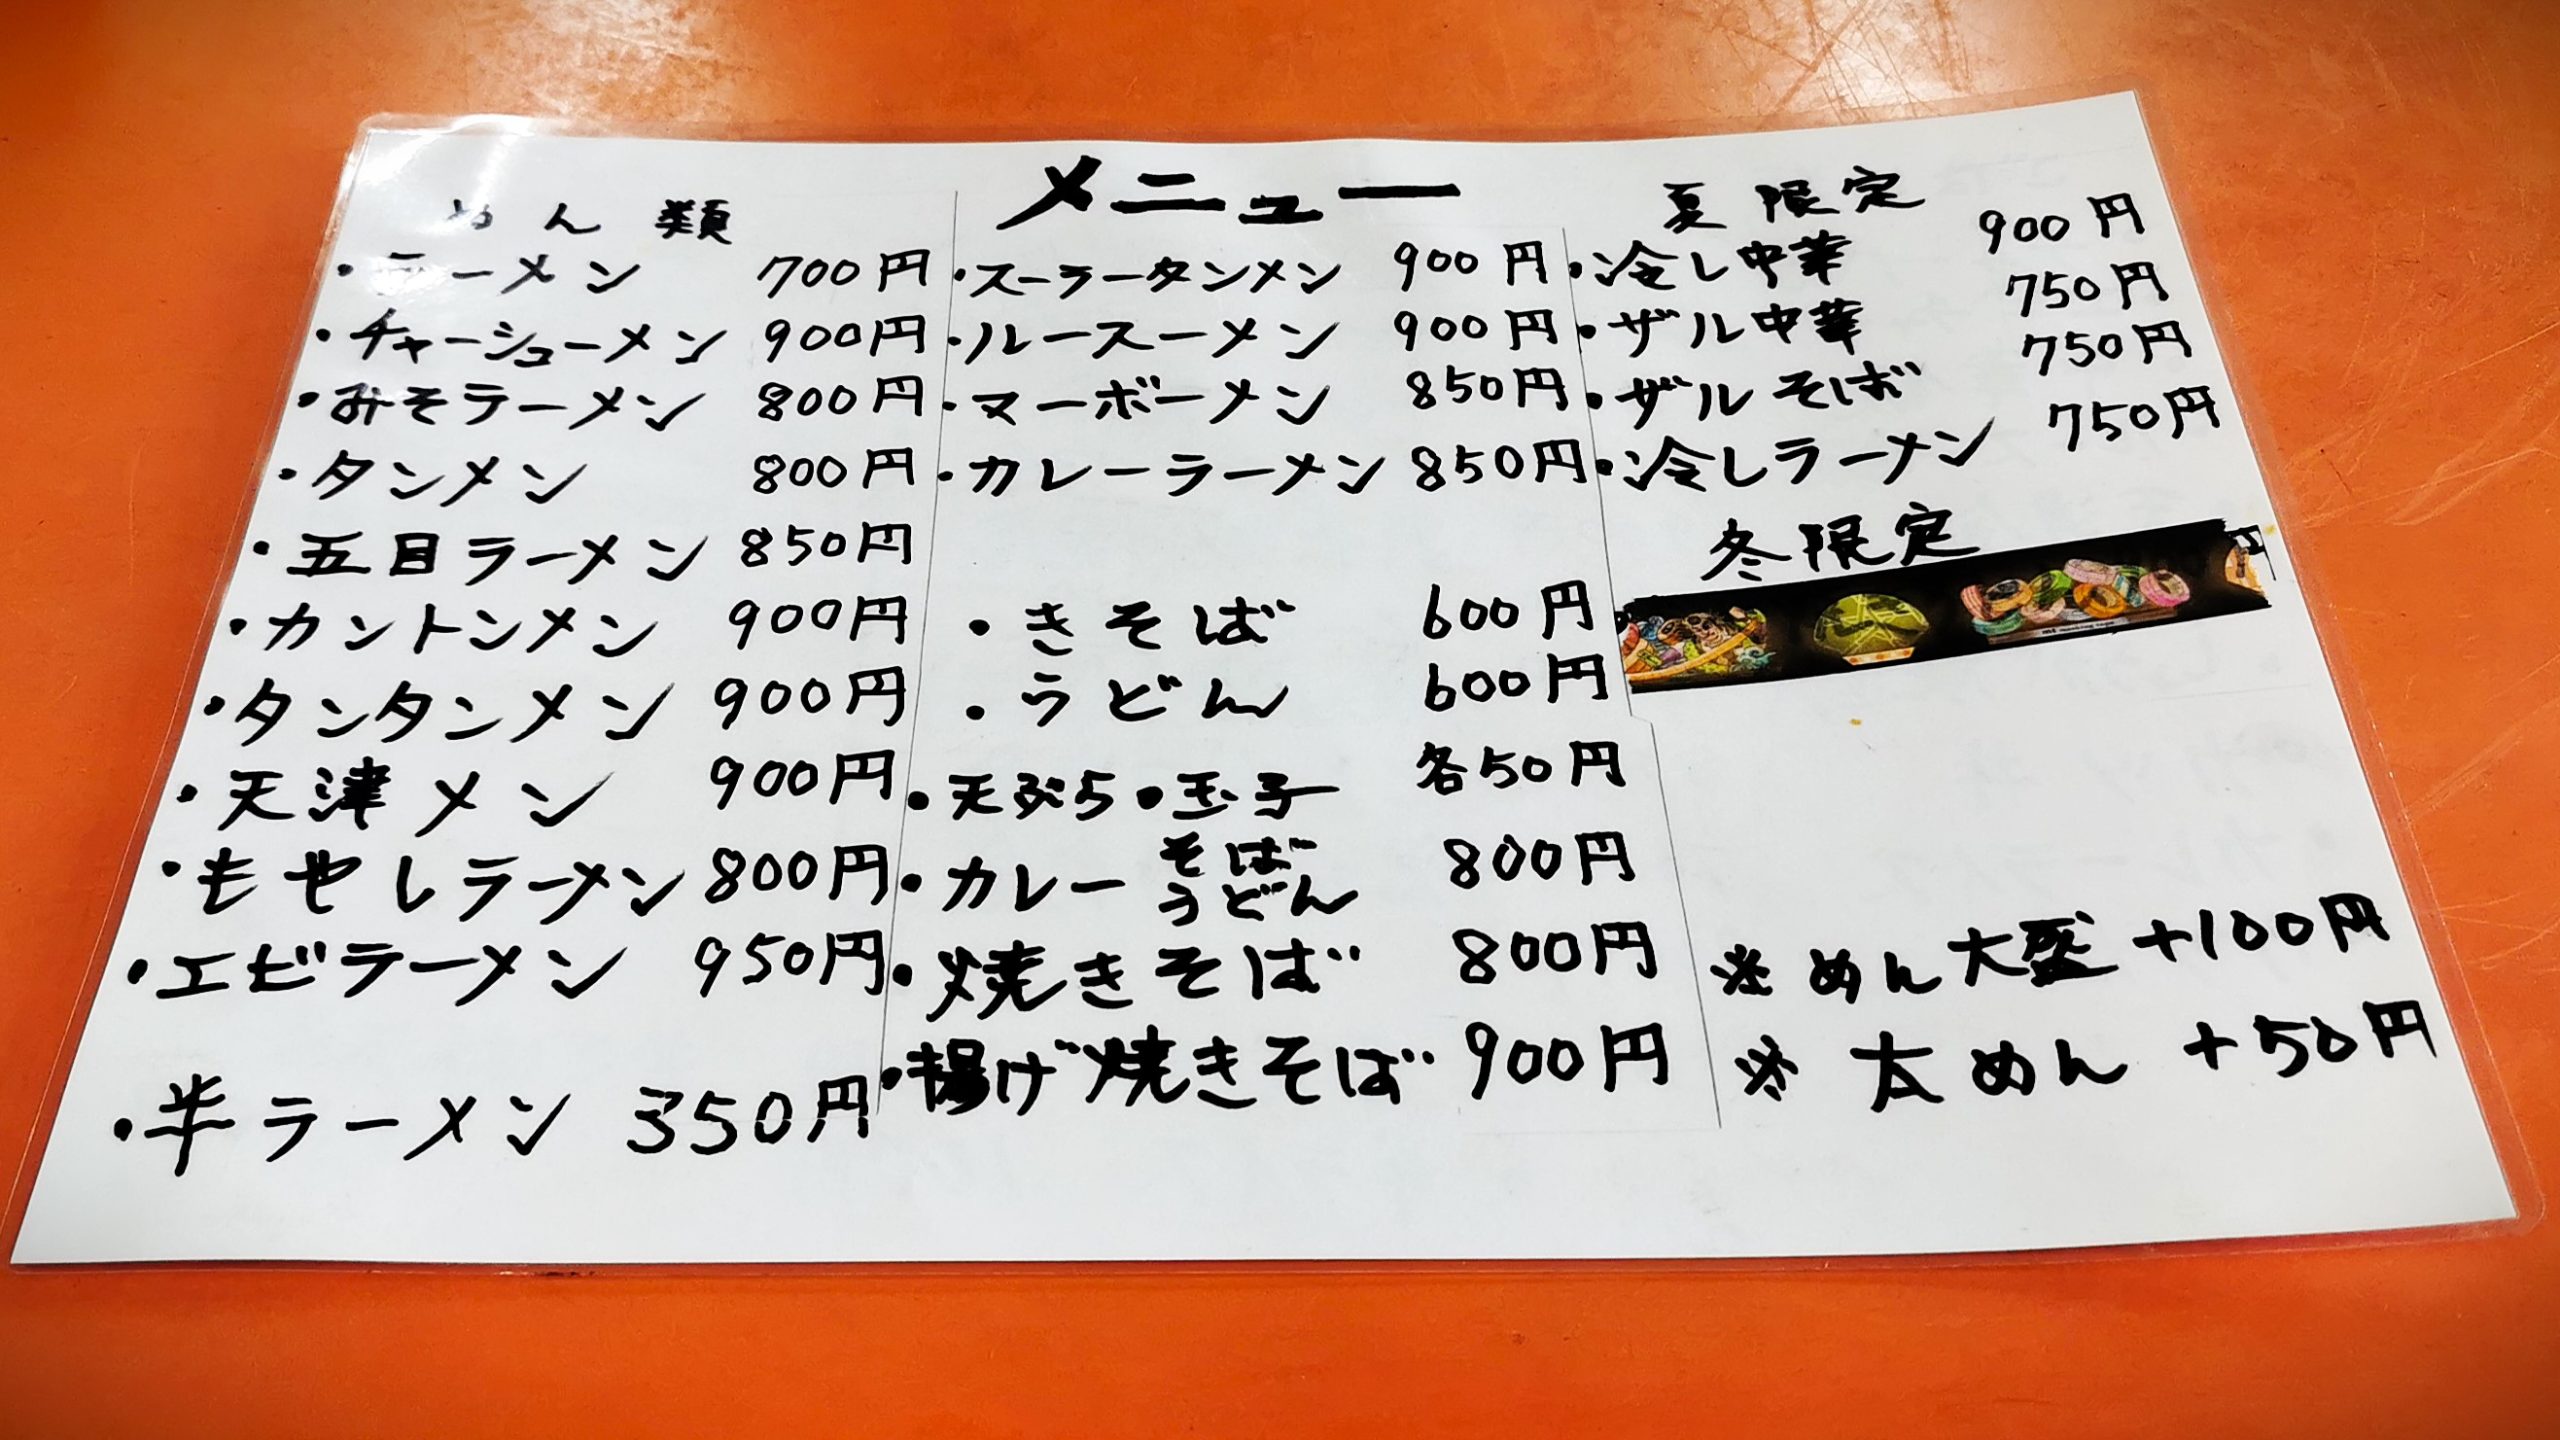 メニュー
めん類
・ラーメン 700円
・チャーシューメン 900円
・みそラーメン 800円
・タンメン 800円
・五目ラーメン 850円
・カントンメン 900円
・タンタンメン 900円
・天津メン 900円
・もやしラーメン 800円
・エビラーメン 950円
・半ラーメン 350円
・スーラータンメン 900円
・ルースーメン 900円
・マーボーメン 850円
・カレーラーメン 850円
・きそば 600円
・うどん 600円
・天ぷら・玉子 各50円
・カレー そば うどん 800円
・焼きそば 800円
・揚げ焼きそば 900円
夏限定
・冷し中華 900円
・ザル中華 750円
・ザルそば 750円
・冷しラーメン 750円
冬限定
※めん大盛+100円
※太めん+50円